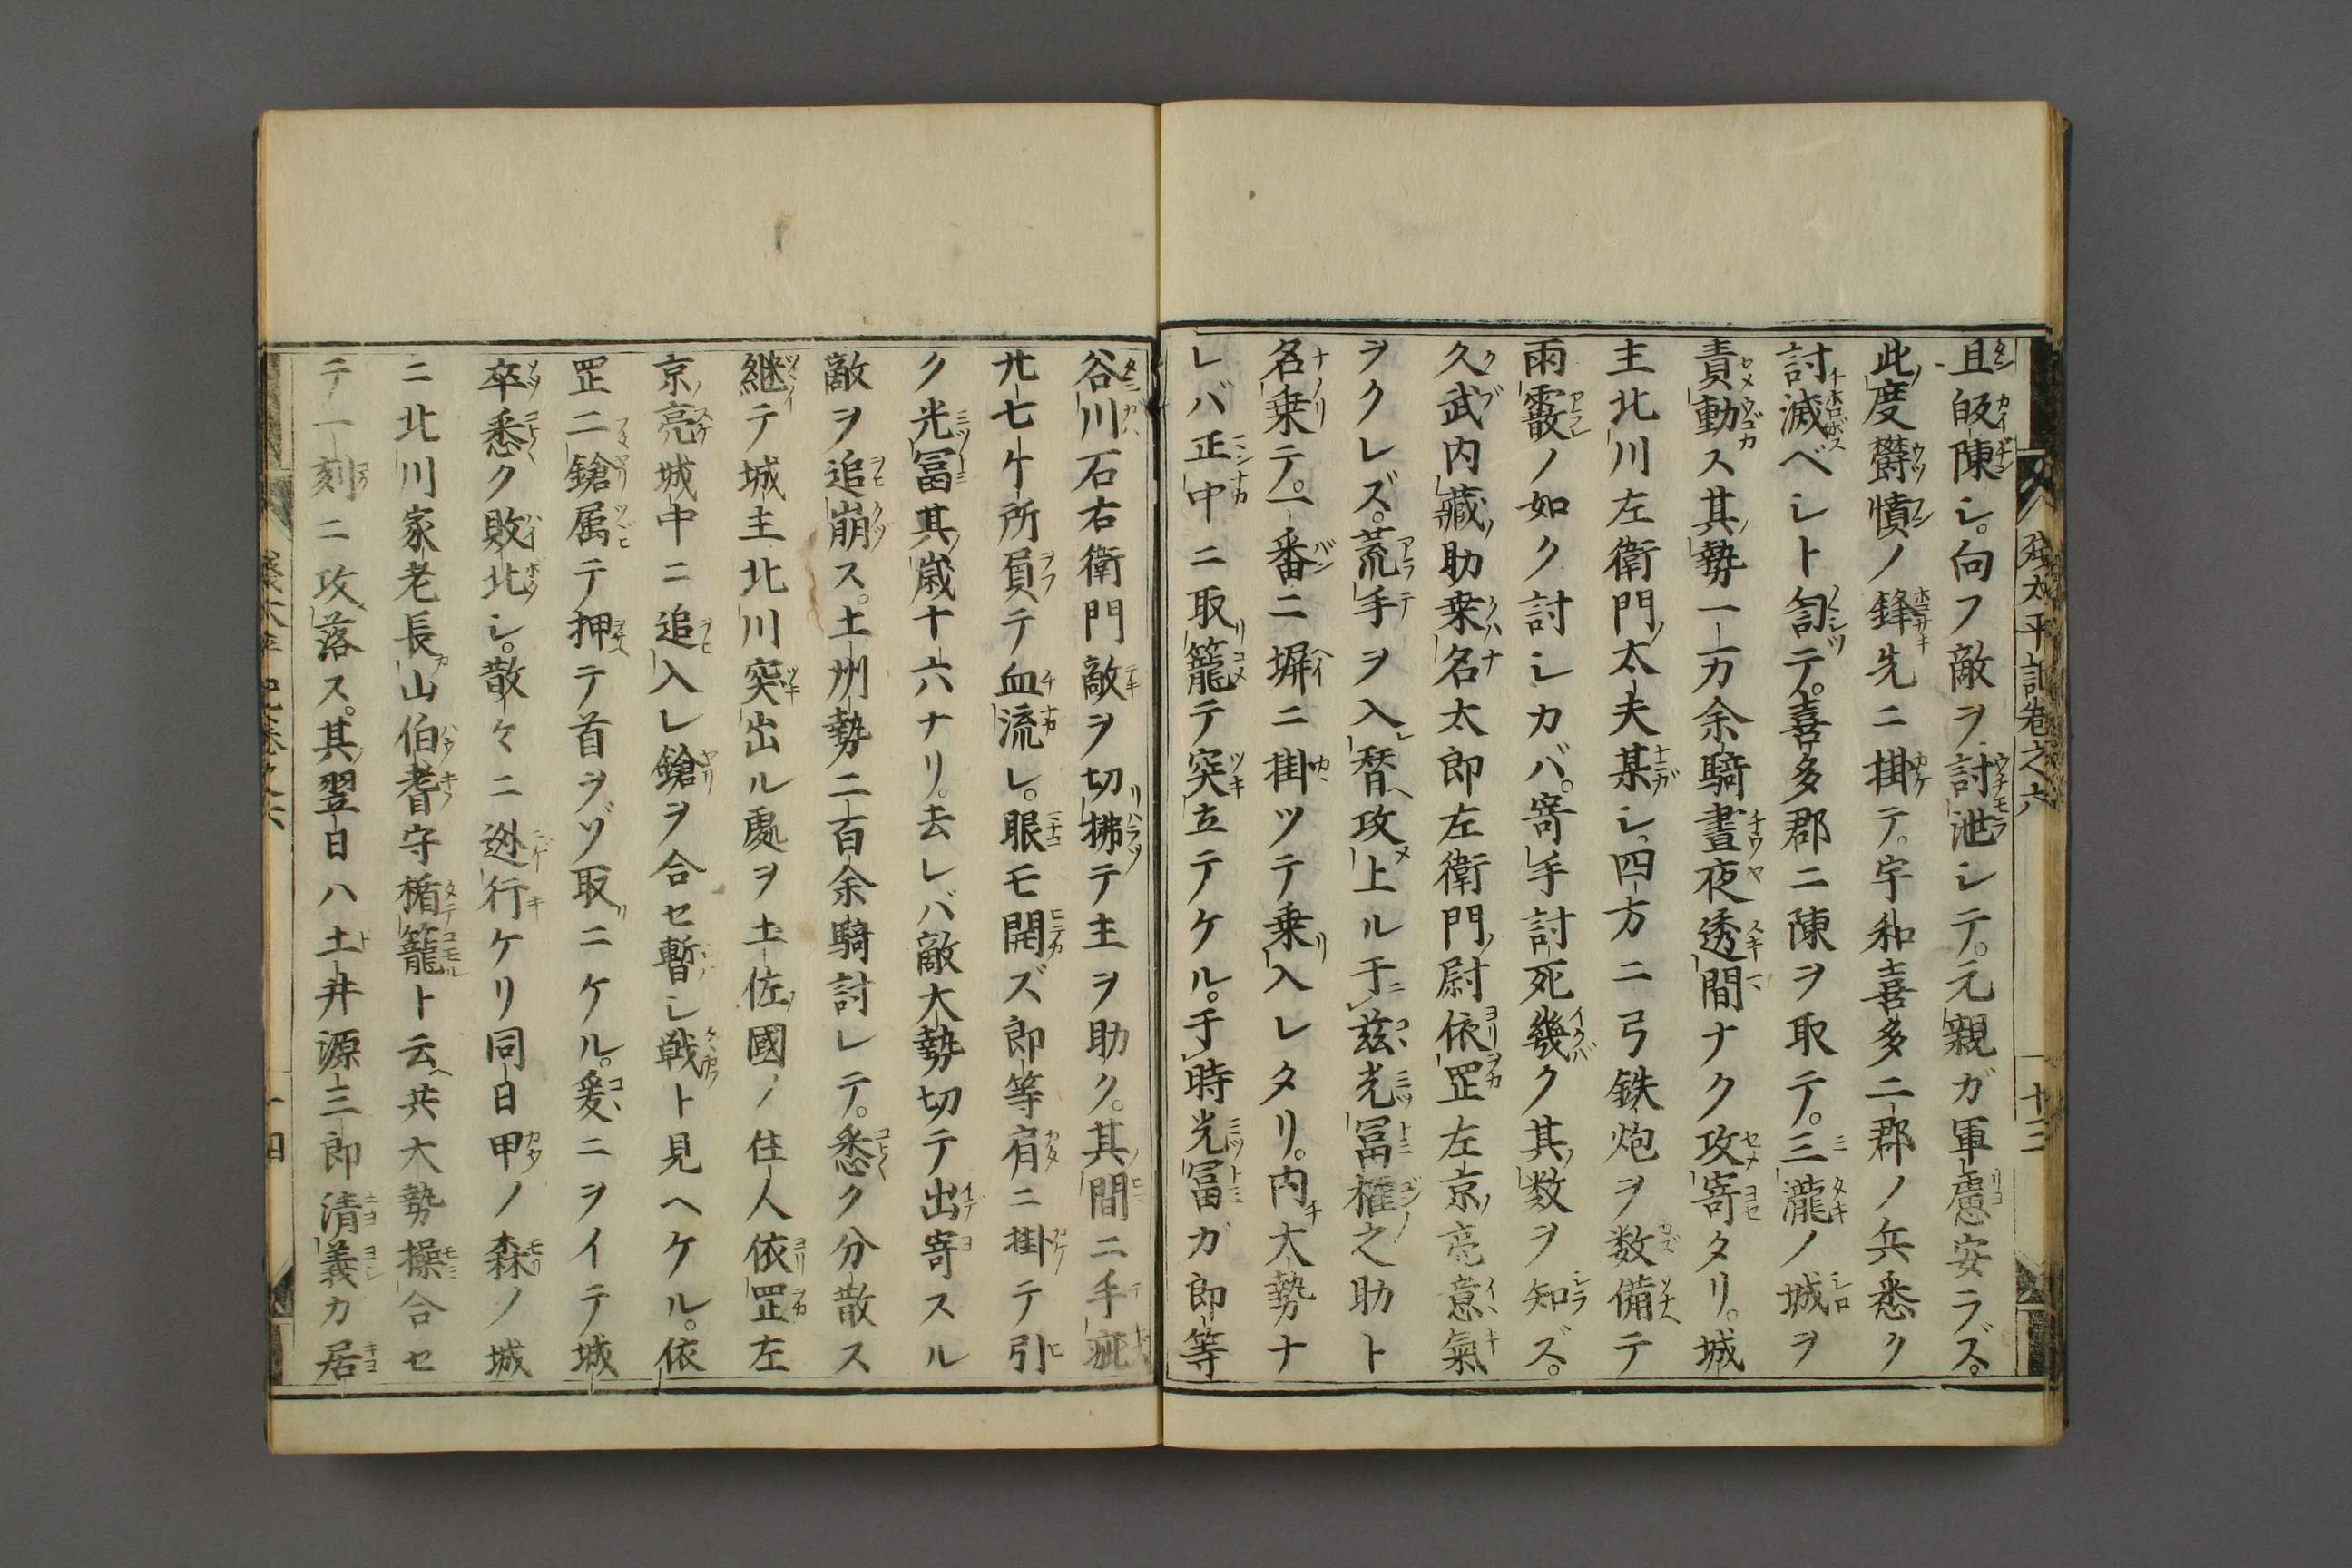 残太平記巻之六　十三
且皈陳シ。向フ敵ヲ討泄シテ。元親ガ軍慮安ラズ。
此度欝憤ノ鋒先ニ掛テ。宇和喜多二郡ノ兵悉ク
討滅ベシト訇テ。喜多郡ニ陳ヲ取テ。三瀧ノ城ヲ
責動ス其勢一万余騎晝夜透間ナク攻寄タリ。城
主北川左衛門太夫某シ。四方ニ弓鉄炮ヲ数備テ
雨霰ノ如ク討シカバ。寄手討死幾ク其数ヲ知ズ。
久武内藏助乗名太郎左衛門尉依罡左京亮意氣
ヲクレズ。荒手ヲ入替攻上ル于茲光冨権之助ト
名乗テ。一番ニ塀ニ掛ツテ乗入レタリ。内大勢ナ
レバ正中ニ取籠テ突立テケル。于時光冨ガ郎等
谷川石右衛門敵ヲ切拂テ主ヲ助ク。其間ニ手疵
廿七ケ所負テ血流レ。眼モ開ズ郎等肩ニ掛テ引
ク光冨其歳十六ナリ。去レバ敵大勢切テ出寄スル
敵ヲ追崩ス。土州勢二百余騎討レテ。悉ク分散ス
継テ城主北川突出ル處ヲ土佐國ノ住人依罡左
京亮城中ニ追入レ鎗ヲ合セ暫シ戦ト見ヘケル。依
罡二鎗属テ押テ首ヲゾ取ニケル。爰ニヲイテ城
卒悉ク敗北シ。散々ニ迯行ケリ同日甲ノ森ノ城
ニ北川家老長山伯耆守楯籠ト云共大勢操合セ
テ一刻ニ攻落ス。其翌日ハ土井源三郎清義カ居
残太平記巻之六　十四